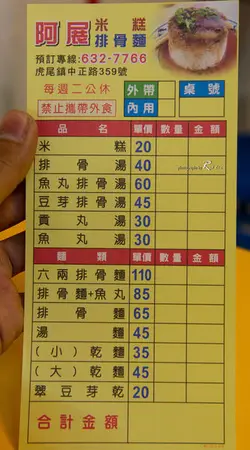 阿展 米糕 排骨麵
預訂專線:632-7766
虎尾鎮中正路359號
每週二公休 外帶 桌號
禁止攜帶外食 內用
品名 單價 數量 金額
米糕 20
排骨湯 40
魚丸排骨湯 60
豆芽排骨湯 45
貢丸湯 30
魚丸湯 30
麵類 單價 數量 金額
六兩排骨麵 110
排骨麵+魚丸 85
排骨麵 65
湯麵 45
(小)乾麵 35
(大)乾麵 45
翠豆芽乾 20
合計金額